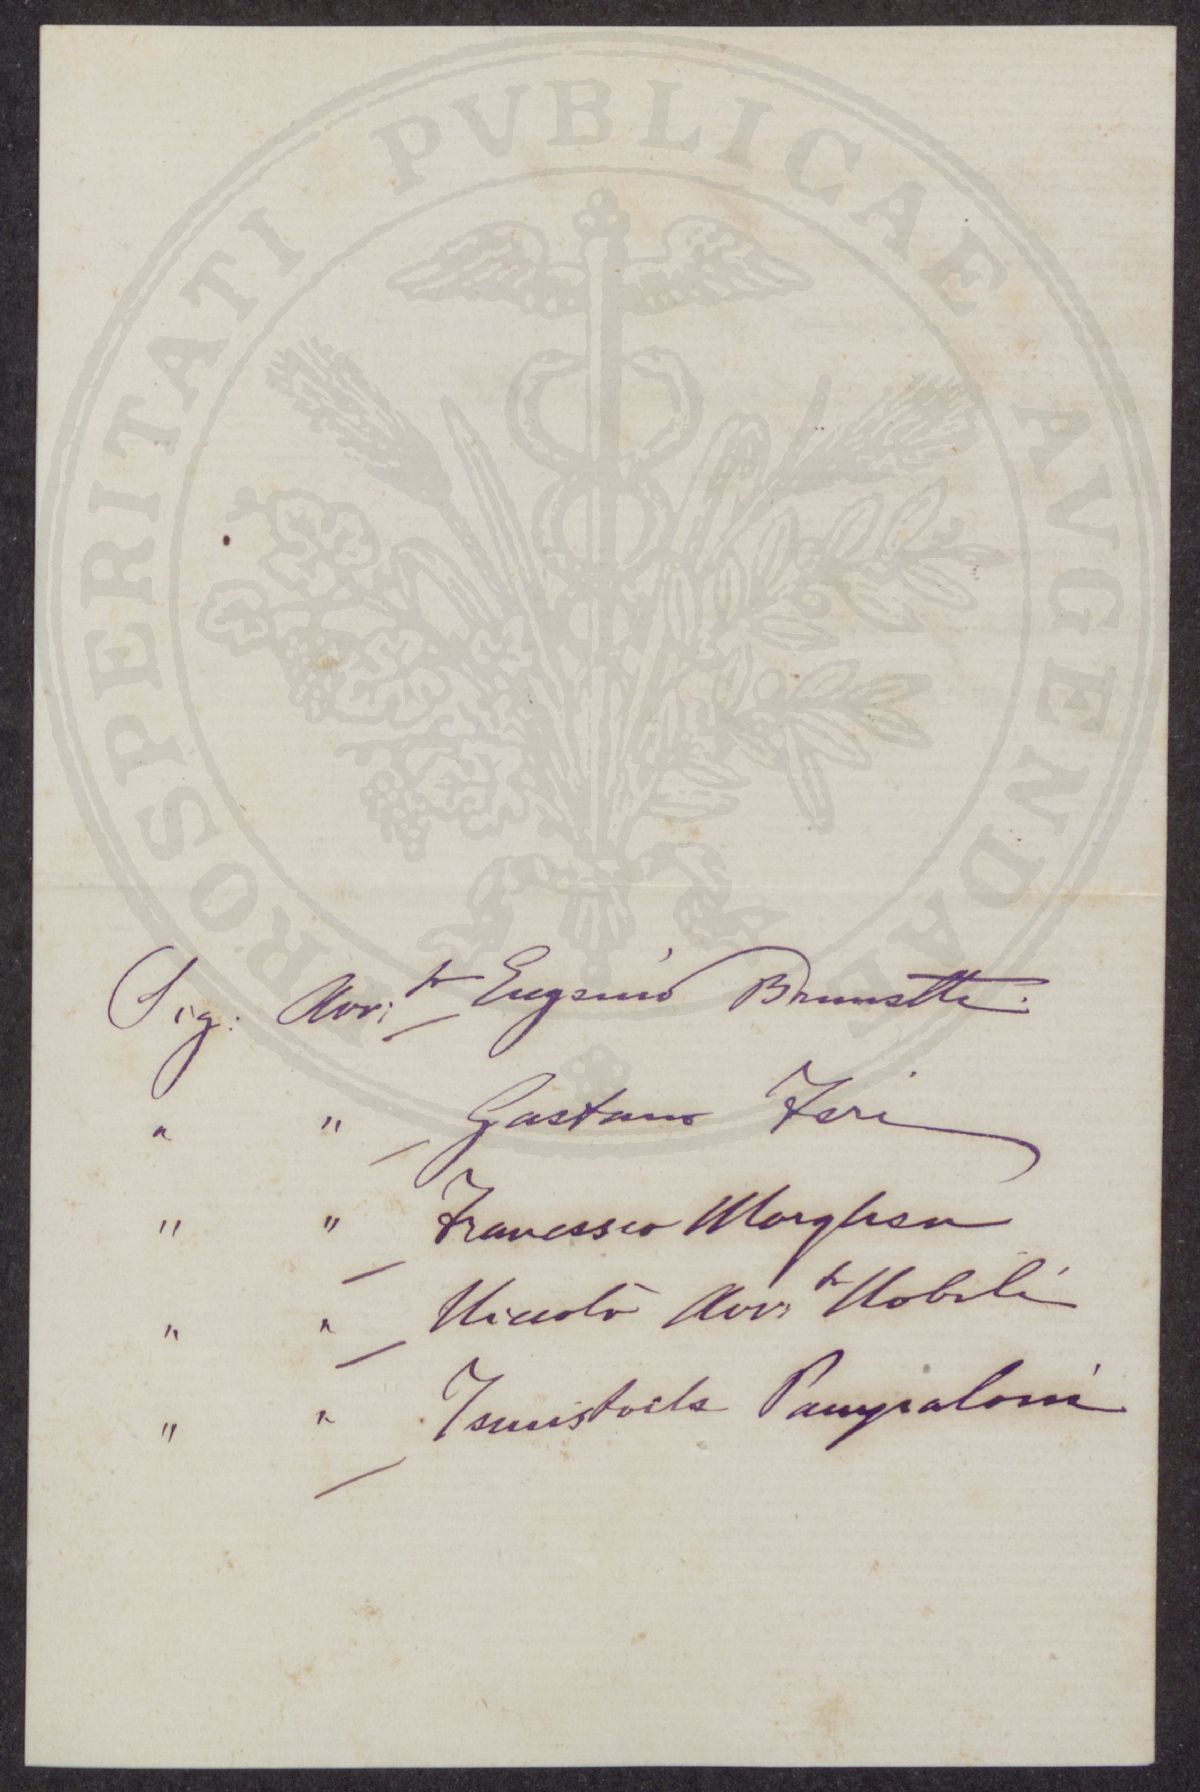 PROSPERITATI PVBLICAE AVGENDAE
Sig: Avv:to Eugenio Brunetti.
" " Gaetano Feri
" " Francesco
" " Niccolò Avv:to Nobili
" " Temistocle Pampaloni